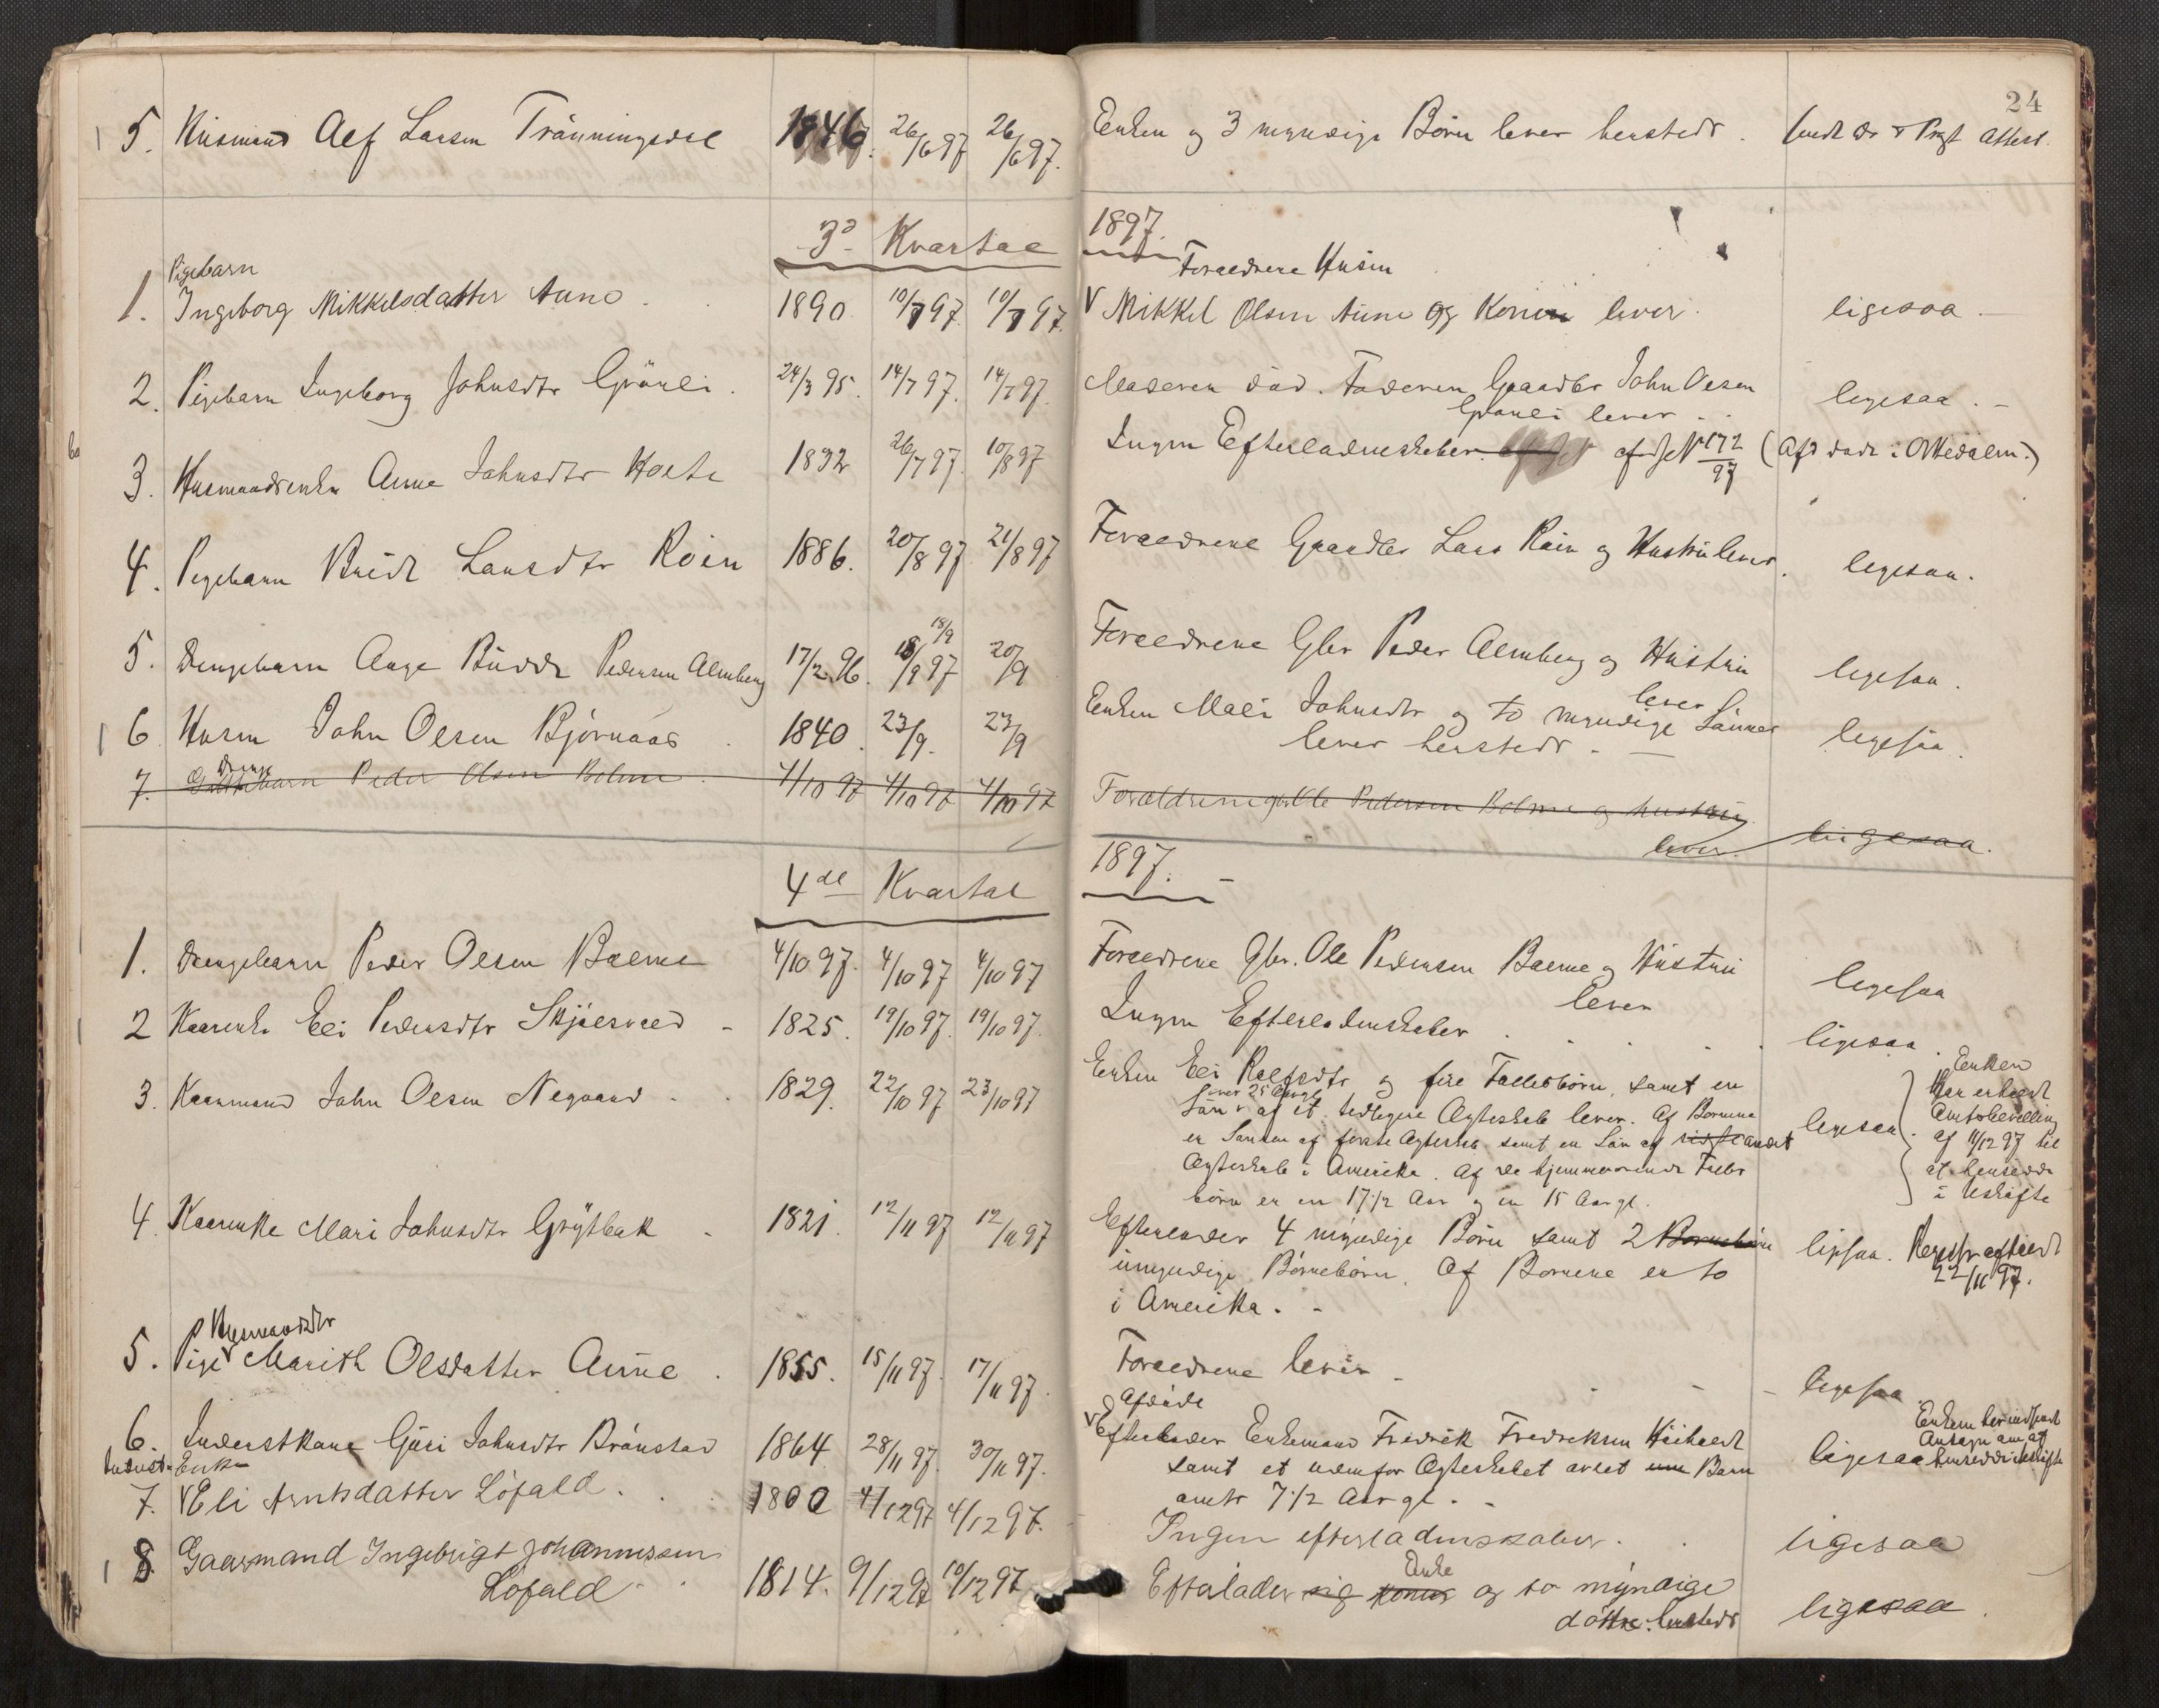 24
5. Husmand Alf Larsen Tränningsdal 1846. 26/6 97 26/6 97. Enken og 3 myndige Börn lever herstedr.
3d Kvartal 1897.
Pigebarn Forældrene Husm
1. Ingeborg Mikkelsdatter Aune 1890. 10/7 97. 10/7 97. Mikkel Olsen Aune og Kone lever. ligesaa.
2. Pigebarn Ingeborg Johnsdtr Grönli. 24/3 95. 14/7 97. 14/7 97. Moderen död. Faderen Gaardbr John Olsen
Grönli lever. ligesaa. -
3. Husmandsenke Anne Johnsdtr Holte 1832 26/7 97. 10/8 97 Ingen Efterladenskaber. 172/97 (Afd døde i Orkedalen.)
4. Pigebarn Larsdtr Röen 1886. 20/8 97 21/8 97 Forældrene Gaardbr Lars Röen og Hustrü lever. ligesaa.
18/9
5. Drengebarn Aage Pedersen Almberg 17/2 96. 18/9 97 20/9 Forældrene Gbr Peder Almberg og Hüstrü
lever ligesaa.
6 Husm John Olsen Björnaas 1840. 23/9. 23/9 Enken Mali Johnsdtr og to myndige Sönner
lever herstedr. - ligesaa.
Drenge
7. barn Peder Olsen Bolme 4/10 97 4/10 97 4/10 97 Forældrene gbr Ole Pedersen Bolme og hustru
lever. ligesaa.
4de Kvartal 1897. -
1. Drengebarn Peder Olsen Bolme 4/10 97. 4/10 97 4/10 97 Forældrene Gbr. Ole Pedersen Bolme og Hüstrü
lever ligesaa
2 Kaarenke Eli Pedersdtr Skjölsvold - 1825. 19/10 97. 19/10 97. Ingen Efterladenskaber. ligesaa.
3. Kaarmand John Olsen Negaard. 1829. 22/10 97 23/10 97 Enken Eli Rolfsdtr og fire Fællesbörn, samt en
over 25 Aar gl
Sön af et tidligere Ægteskab lever. Af Börnene
er Sönnen af første Ægteskab samt en Sön af sidste andet
Ægteskab i Amerika. Af de hjemmeværende Fælles
börn er en 17 1/2 Aar og en 15 Aar gl. ligesaa.
Enken
har erholdt
Amtsbevilling
af 11/12 97 til
at hensidde
i Uskifte
4. Kaarenke Mari Johnsdtr Grytbak - 1821. 12/11 97 12/11 97 Efterlader 4 myndige Börn samt 2 Börnebörn
umyndige Börnebörn. Af Börnene er to
i Amerika. - ligesaa. 22/11 97.
Husmandsdtr
5. Pige Marith Olsdatter Aüne. 1855. 15/11 97. 17/11 97. Forældrene lever - ligesaa
Afdöde
6. Inderstkone Göri Johnsdtr Brönstad 1864 28/11 97. 30/11 97. Efterlader Enkemand Fredrik Fredriksen
samt et udenfor Ægteskabet avlet Barn
7 1/2 Aar gl. - ligesaa
Inderst-Enke
7. Eli Arntsdatter Löfald. 1800 4/12 97 4/12 97. Ingen efterladenskaber. ligesaa
8 Gaarmand Ingebrigt Johannessen
Löfald 1814. 9/12 97 10/12 97 Efterlader sig kone Enke og to myndige
döttre. herstedr ligesaa.